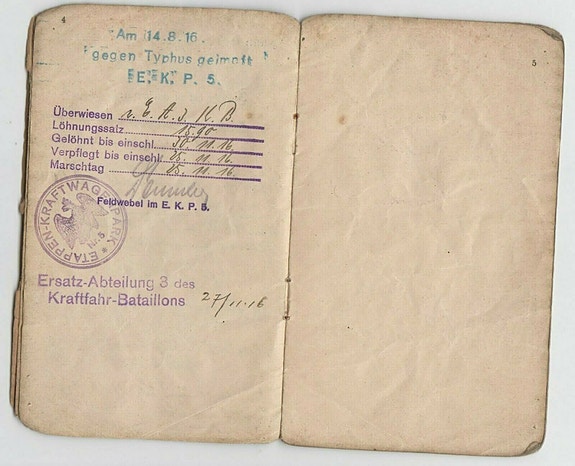 4
Am 14.8.16.
gegen Typhus geimpft
E. K. P. 5.
Überwiesen z. E. A. 3 K. B.
Löhnungssatz 15,90
Gelöhnt bis einschl. 30.11.16
Verpflegt bis einschl. 25.11.16.
Marschtag 25.11.16.
Feldwebel im E. K. P. 5.
ETAPPEN-KRAFTWAGEN-PARK * Nr. 5 *
Ersatz-Abteilung 3 des
Kraftfahr-Bataillons 27/11.16
5